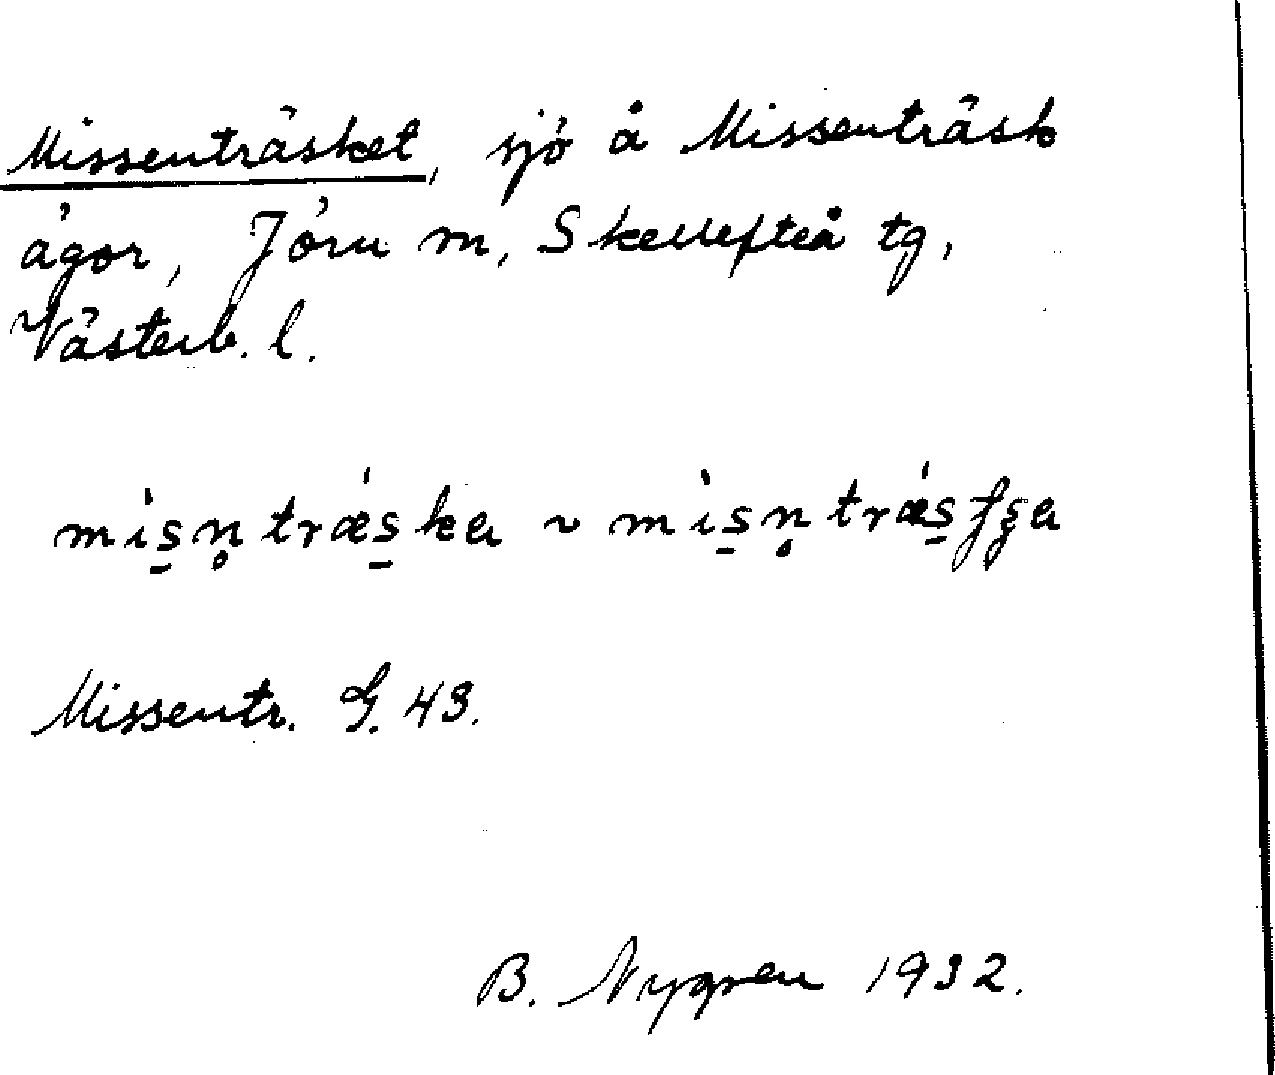 Missenträsket, sjö å Missenträsk
ägor, Jörn m, Skellefteå tg,
Västerb. l.
mìs̲n̥trǽs̲ka ~ mìs̲n̥trǽs̲
Missentr. G. 43.
B. Nygren 1932.